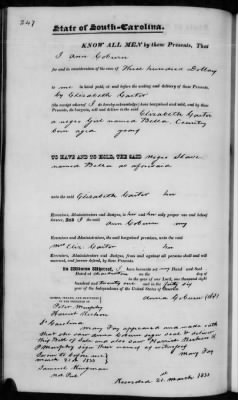 247
State of South-Carolina.
KNOW ALL MEN by these Presents, That
I Ann Coburn
for and in consideration of the sum of Three hundred Dollars
to me in hand paid, at and before the sealing and delivery of these Presents,
by Elizabeth Carter
(the receipt whereof I do hereby acknowledge) have bargained and sold, and by these
Presents, do bargain, sell and deliver to the said Elizabeth Carter
a negro Girl named Bella, Country
born aged years
TO HAVE AND TO HOLD, THE SAID negro Slave
named Bella as aforesaid
unto the said Elizabeth Carter her
Executors, Administrators and Assigns, to her and her only proper use and behoof
forever. And I the said Ann Coburn my
Executors, Administrators and Assigns, the said bargained premises, unto the said
Mrs Eliz. Carter her
Executors, Administrators and Assigns, from and against all persons shall and will
warrant, and forever defend, by these Presents.
In Witness Whereof, I have hereunto set my Hand and Seal
Dated at Charleston on the day of
in the year of our Lord, one thousand eight
hundred and twenty one and in the forty fifth
year of the Independence of the United States of America.
SIGNED, SEALED, AND DELIVERED
IN THE PRESENCE OF
Anna Coburn (LS)
Peter Murphy
Harriet
So Carolina
May Fay appeared and made oath
that she saw Anna Coburn sign seal & deliver
this Bill of Sale and also saw Harriet &
P Murphy sign their names as witnesses
Sworn to before me
March 21st 1833
May Fay
Samuel
Not Pub
Recorded 21st March 1833